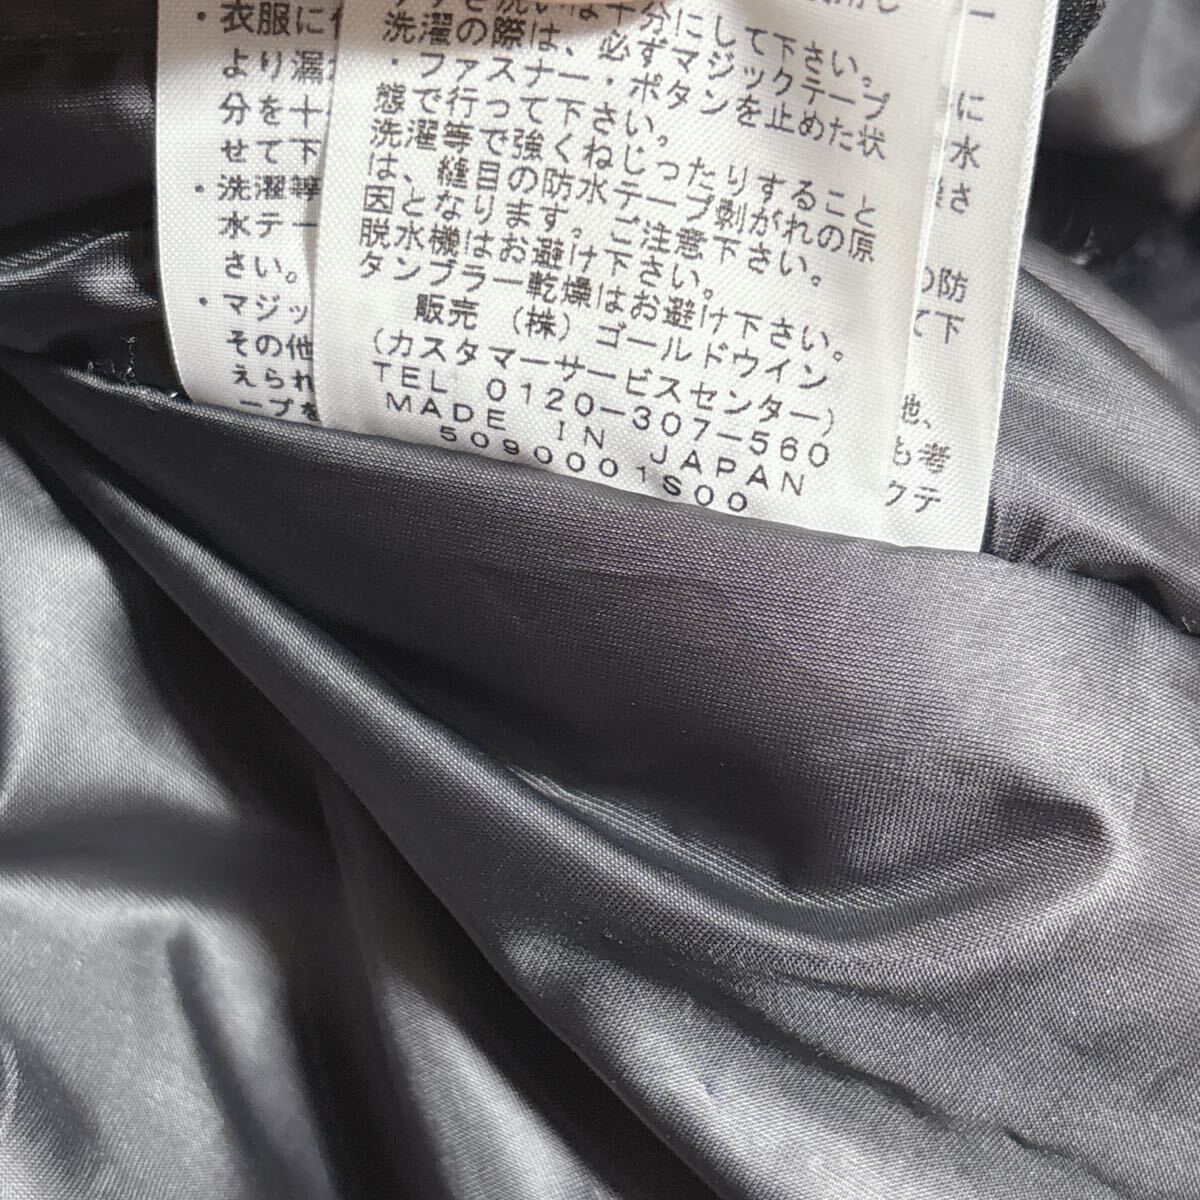 すすぎ洗いは十分にして下さい。
洗濯の際は、必ずマジックテープ
・ファスナー・ボタンを止めた状
態で行って下さい。
洗濯等で強くねじったりすること
は、縫目の防水テープ剥がれの原
因となります。ご注意下さい。
脱水機はお避け下さい。
タンブラー乾燥はお避け下さい。
販売 (株)ゴールドウイン
(カスタマーサービスセンター)
TEL 0120-307-560
MADE IN JAPAN
5090001S00
・衣服に
より漏
分を十
せて下
・洗濯等
水テー
さい。
・マジッ
その他
えられ
ープを
に
水
さ
の防
て下
他、
も考
クテ